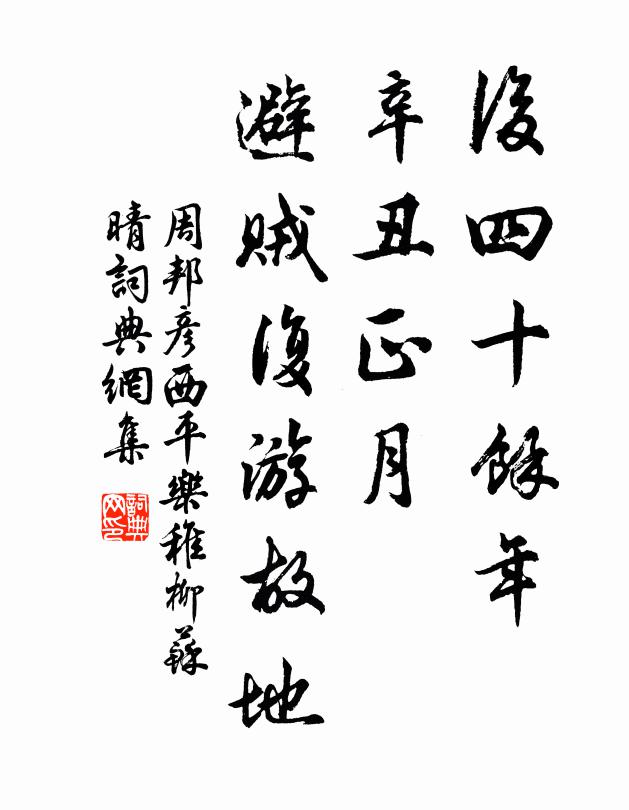 後四十餘年
辛丑正月
避賊復游故地
周邦彦西平樂稚柳蘇
晴詞典網集
詞典网印